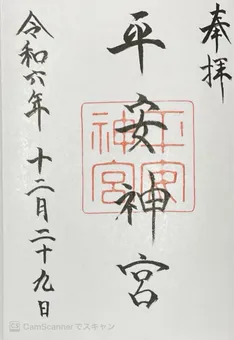 奉拝
平安神宮
平安神宮
令和六年 十二月二十九日
CS CamScanner でスキャン